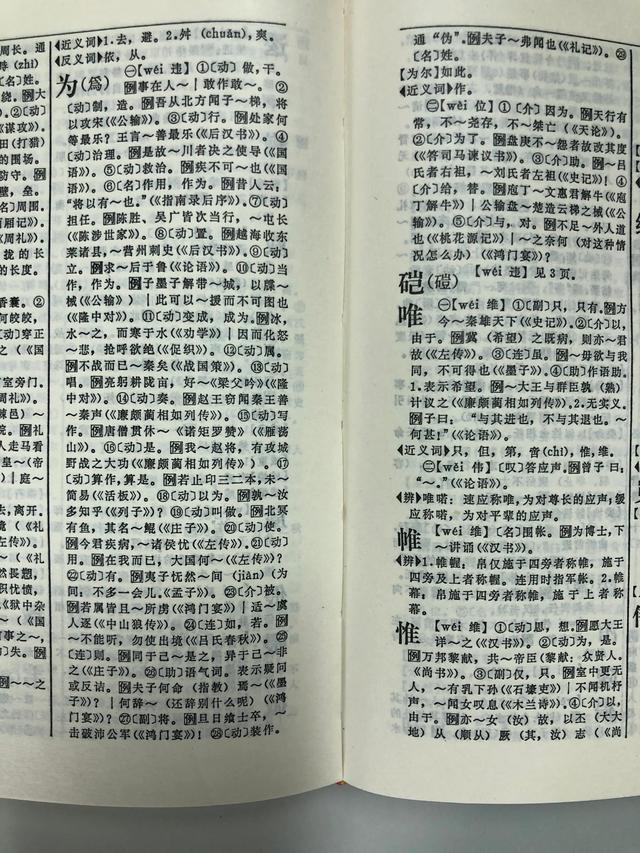 周长。通
(zhì)
绕。例大
。②〔动〕
《谋攻》。
田（打猎）
的围场。
防守。例
壁，垒。
〔名〕周围。
西厢记》。
《周礼》。
拢 的 长
的长度。
香囊。②
何皎皎，
〔动〕穿正
室旁门。
周礼》。
人走马看
皇～（帝
庭～
去，离开。
《礼
《礼
然长想，
积忧愤，
《狱中杂
百事之～，
〔动〕失。例
例～～之
◂近义词▸1.去，避。2.舛（chuǎn），爽。
◂反义词▸依，从。
为（爲） ㊀【wéi 违】①〔动〕做，干。
例事在人～｜敢作敢～。②
〔动〕制，造。例吾从北方闻子～梯，将
以攻宋（《公输》）。③〔动〕行。例处家何
等最乐？王言～善最乐（《后汉书》。④
〔动〕治理。例是故～川者决之使导（《国
语》）。⑤〔动〕救治。例疾不可～也（《国
语》）。⑥〔名〕作用，作为。例昔人云：
“将以有～也。”（《指南录后序》）。⑦〔动〕
担任。例陈胜、吴广皆次当行，～屯长
（《陈涉世家》）。⑧〔动〕置。例越海收东
莱诸县，～营州刺史（《后汉书》）。⑨〔动〕
立。例求～后于鲁（《论语》）。⑩〔动〕当
作，作为。例子墨子解带～城，以牒～
械（《公输》）｜此可以～援而不可图也
（《隆中对》）。⑪〔动〕变成，成为。例冰，
水～之，而寒于水（《劝学》）｜因而化怒
～悲，抢呼欲绝（《促织》）。⑫〔动〕属。
例不战而已～秦矣（《战国策》）。⑬〔动〕
唱。例亮躬耕陇亩，好～《梁父吟》（《隆
中对》）。⑭〔动〕奏。例赵王窃闻秦王善
～秦声（《廉颇蔺相如列传》）。⑮〔动〕写
作。例唐僧贯休～《诺矩罗赞》（《雁荡
山》）。⑯〔动〕是。例我～赵将，有攻城
野战之大功（《廉颇蔺相如列传》）。⑰
〔动〕算作，算是。例若止印三二本，未～
简易（《活板》）。⑱〔动〕以为。例孰～汝
多知乎（《列子》）？⑲〔动〕叫做。例北冥
有鱼，其名～鲲（《庄子》）。⑳〔动〕使。
例今君疾病，～诸侯忧（《左传》）。㉑〔动〕
用。例在我而已，大国何～（《左传》）？
㉒〔动〕有。例夷子怃然～间（jiàn）（为
间：不多一会儿。《孟子》）。㉓〔介〕被。
例若属皆且～所虏（《鸿门宴》）｜适～虞
人逐（《中山狼传》）。㉔〔连〕如，若。例
～不能听，勿使出境（《吕氏春秋》）。㉕
〔连〕则。例同于己～是之，异于己～非
之（《庄子》）。㉖〔助〕语气词。表示疑问
或反诘。例夫子何命（指教）焉～（《墨
子》）？｜何辞～（还辞别什么呢）（《鸿
门宴》）？㉗〔副〕将。例旦日飨士卒，～
击破沛公军（《鸿门宴》）！㉘〔动〕装作。
通“伪”。例夫子～弗闻也（《礼记》）。㉙
〔名〕姓。
【为尔】如此。
◂近义词▸作。
㊁【wèi 位】①〔介〕因为。例天行有
常，不～尧存，不～桀亡（《天论》）。
②〔介〕为了。例盘庚不～怨者故改其度
（《答司马谏议书》）。③〔介〕助。例～吕
氏者右袒，～刘氏者左袒（《史记》）！④
〔介〕给，替。例庖丁～文惠君解牛（《庖
丁解牛》）｜公输盘～楚造云梯之械（《公
输》）。⑤〔介〕与，对。例不足～外人道
也（《桃花源记》）｜～之奈何（对这种情
况怎么办）（《鸿门宴》）？
硙（磑） 【wéi 违】见 3 页。
唯 ㊀【wéi 维】①〔副〕只，只有。例方
今～秦雄天下（《史记》）。②〔介〕以，
由于。例冀（希望）之既病，则亦～君
故（《左传》）。③〔连〕虽。例～毋欲与我
同，不可得也（《墨子》）。④〔助〕作语助。
1.表示希望。例～大王与群臣孰（熟）
计议之（《廉颇蔺相如列传》）。2.无实义。
例子曰：“与其进也，不与其退也。～
何甚！”（《论语》）。
◂近义词▸只，但，第，啻（chì），惟，维。
㊁【wěi 伟】〔叹〕答应声。例曾子曰：
“～。”（《论语》）。
◂辨▸唯喏：速应称唯，为对尊长的应声；缓
应称喏，为对平辈的应声。
帷 【wéi 维】〔名〕围帐。例为博士，下
～讲诵（《汉书》）。
◂辨▸1.帷幄：帛仅施于四旁者称帷，施于
四旁及上者称幄。连用时指军帐。2.帷
幕：帛施于四旁者称帷，施于上者称
幕。
惟 【wéi 维】①〔动〕思，想。例愿大王
详～之（《汉书》）。②〔动〕为，是。
例万邦黎献，共～帝臣（黎献：众贤人。
《尚书》）。③〔副〕仅，只。例室中更无
人，～有乳下孙（《石壕吏》）｜不闻机杼
声，～闻女叹息（《木兰诗》）。④〔介〕以，
由于。例亦～女（汝）故，以丕（大大
地）从（顺从）厥（其，汝）志（《尚